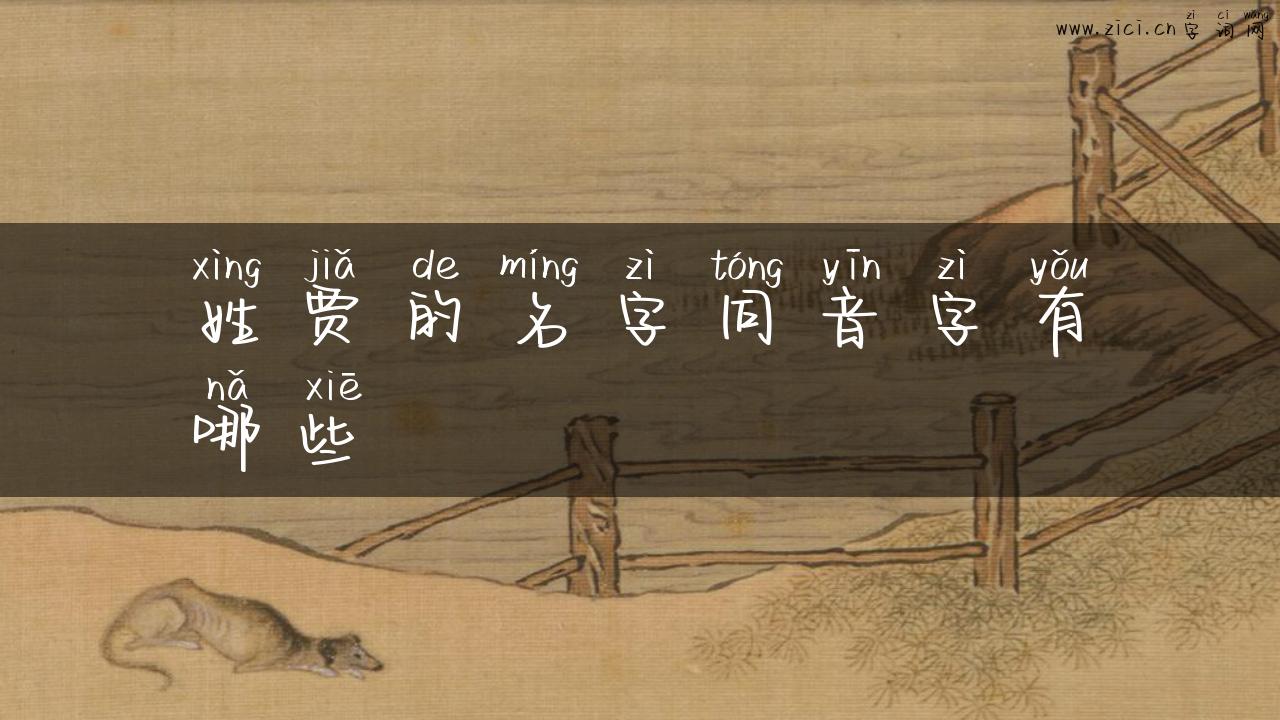 zì cí wang
www.zici.cn字词网
xìng jiǎ de míng zì tóng yīn zì yǒu
姓贾的名字同音字有
nǎ xiē
哪些